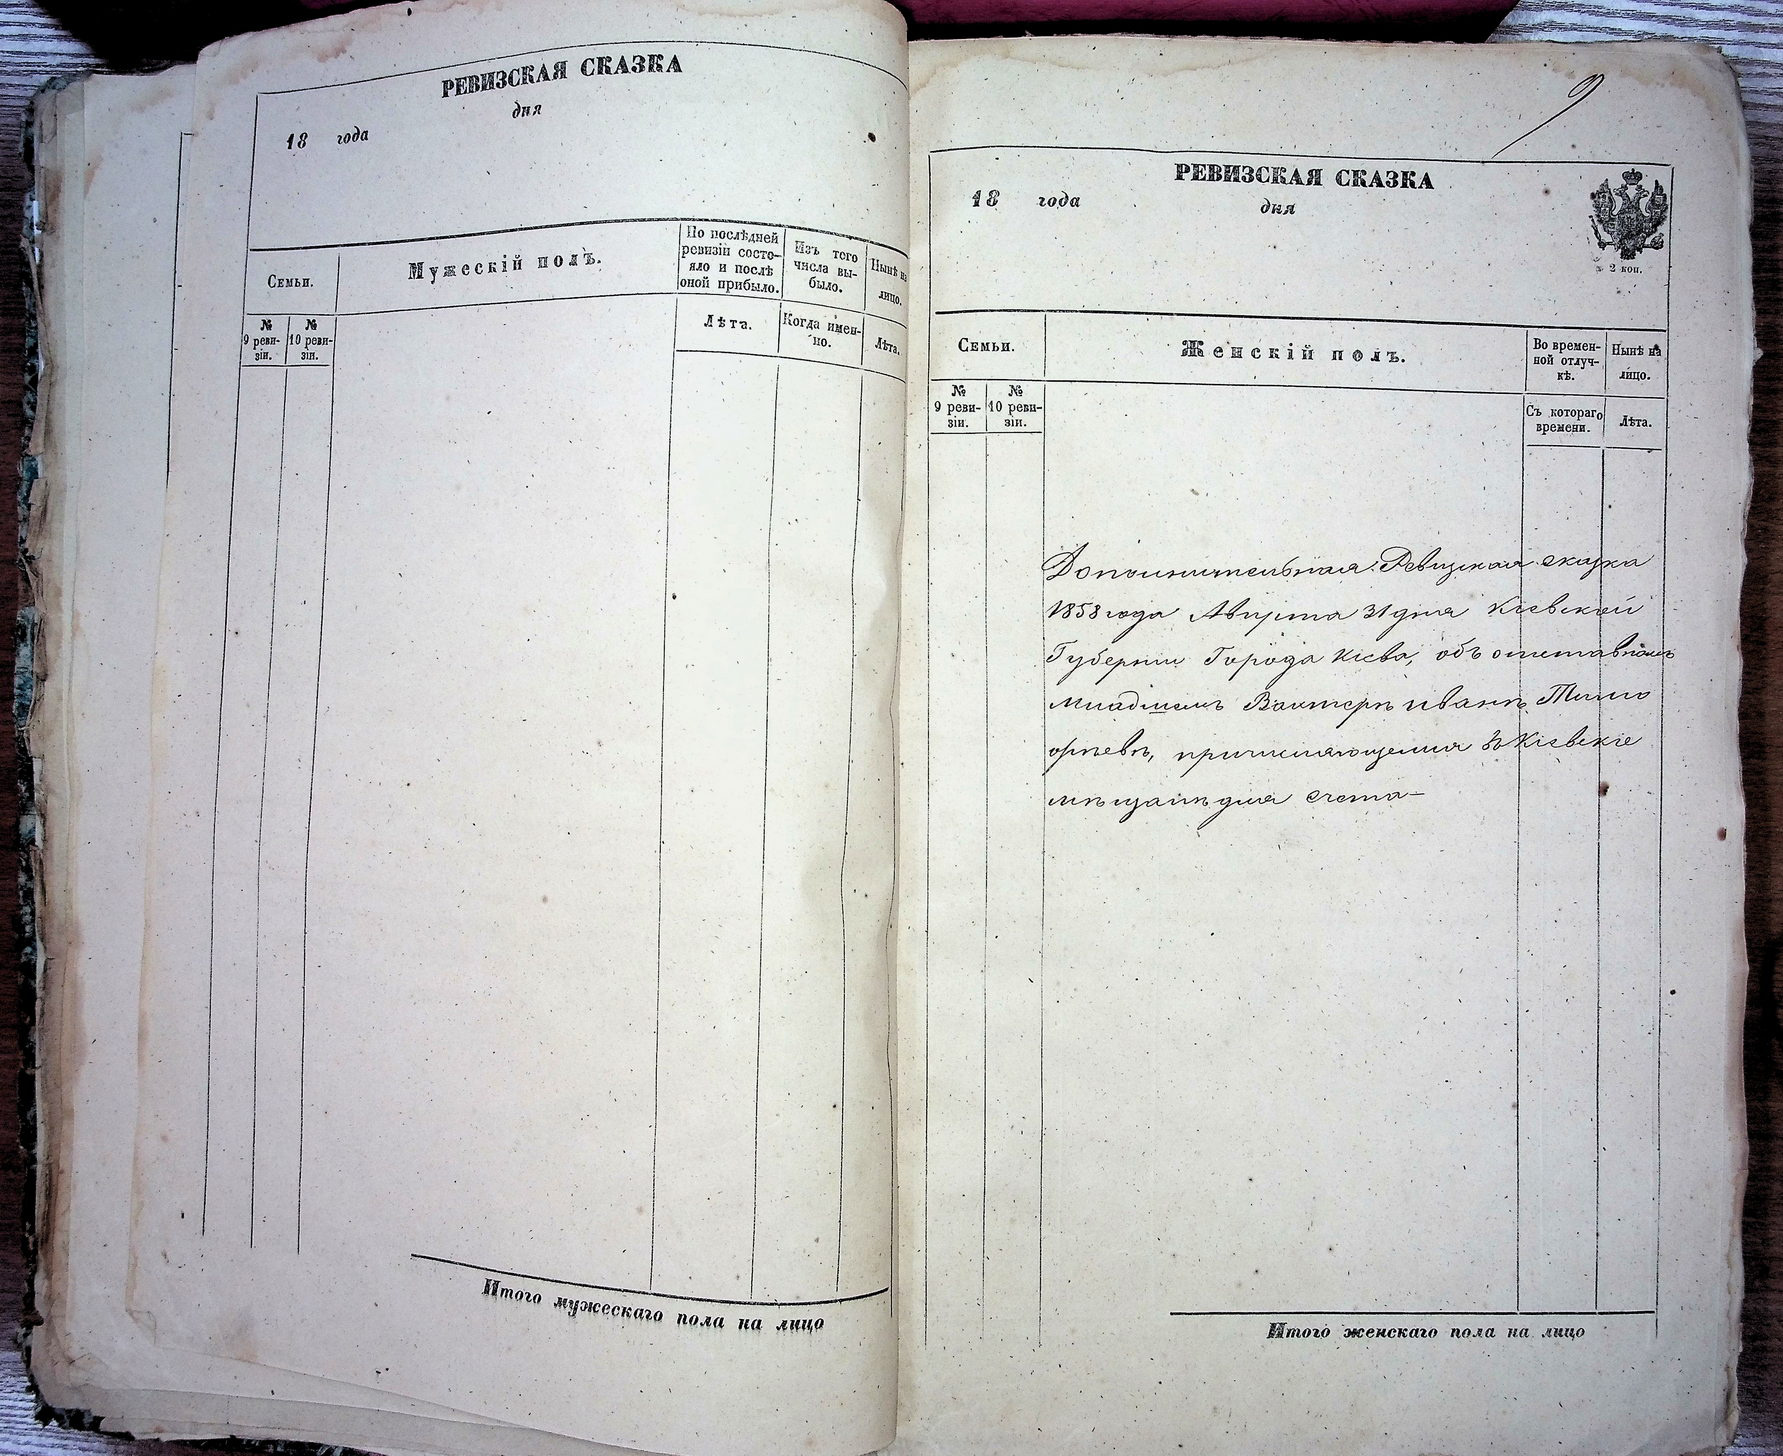 РЕВИЗСКАЯ СКАЗКА
дня
18 года
Семьи.
Мужескій полъ.
По послѣдней
ревизіи состо-
яло и послѣ
оной прибыло.
Изъ того
числа вы-
было.
Нынѣ на
лицо.
№
9 реви-
зіи.
№
10 реви-
зіи.
Лѣта.
Когда имен-
но.
Лѣта.
Итого мужескаго пола на лицо
9
РЕВИЗСКАЯ СКАЗКА
18 года
дня
2 коп.
Семьи.
Женскій полъ.
Во времен-
ной отлуч-
кѣ.
Нынѣ на
лицо.
№
9 реви-
зіи.
№
10 реви-
зіи.
Съ котораго
времени.
Лѣта.
Дополнительная Ревизская сказка
1858 года Августа 31 дня Кіевской
Губерніи Города Кіева, объ отставномъ
младшемъ Вахтерѣ Иванѣ Тимо
фѣевѣ, причисляющемся въ Кіевскіе
мѣщанѣ для счета
Итого женскаго пола на лицо